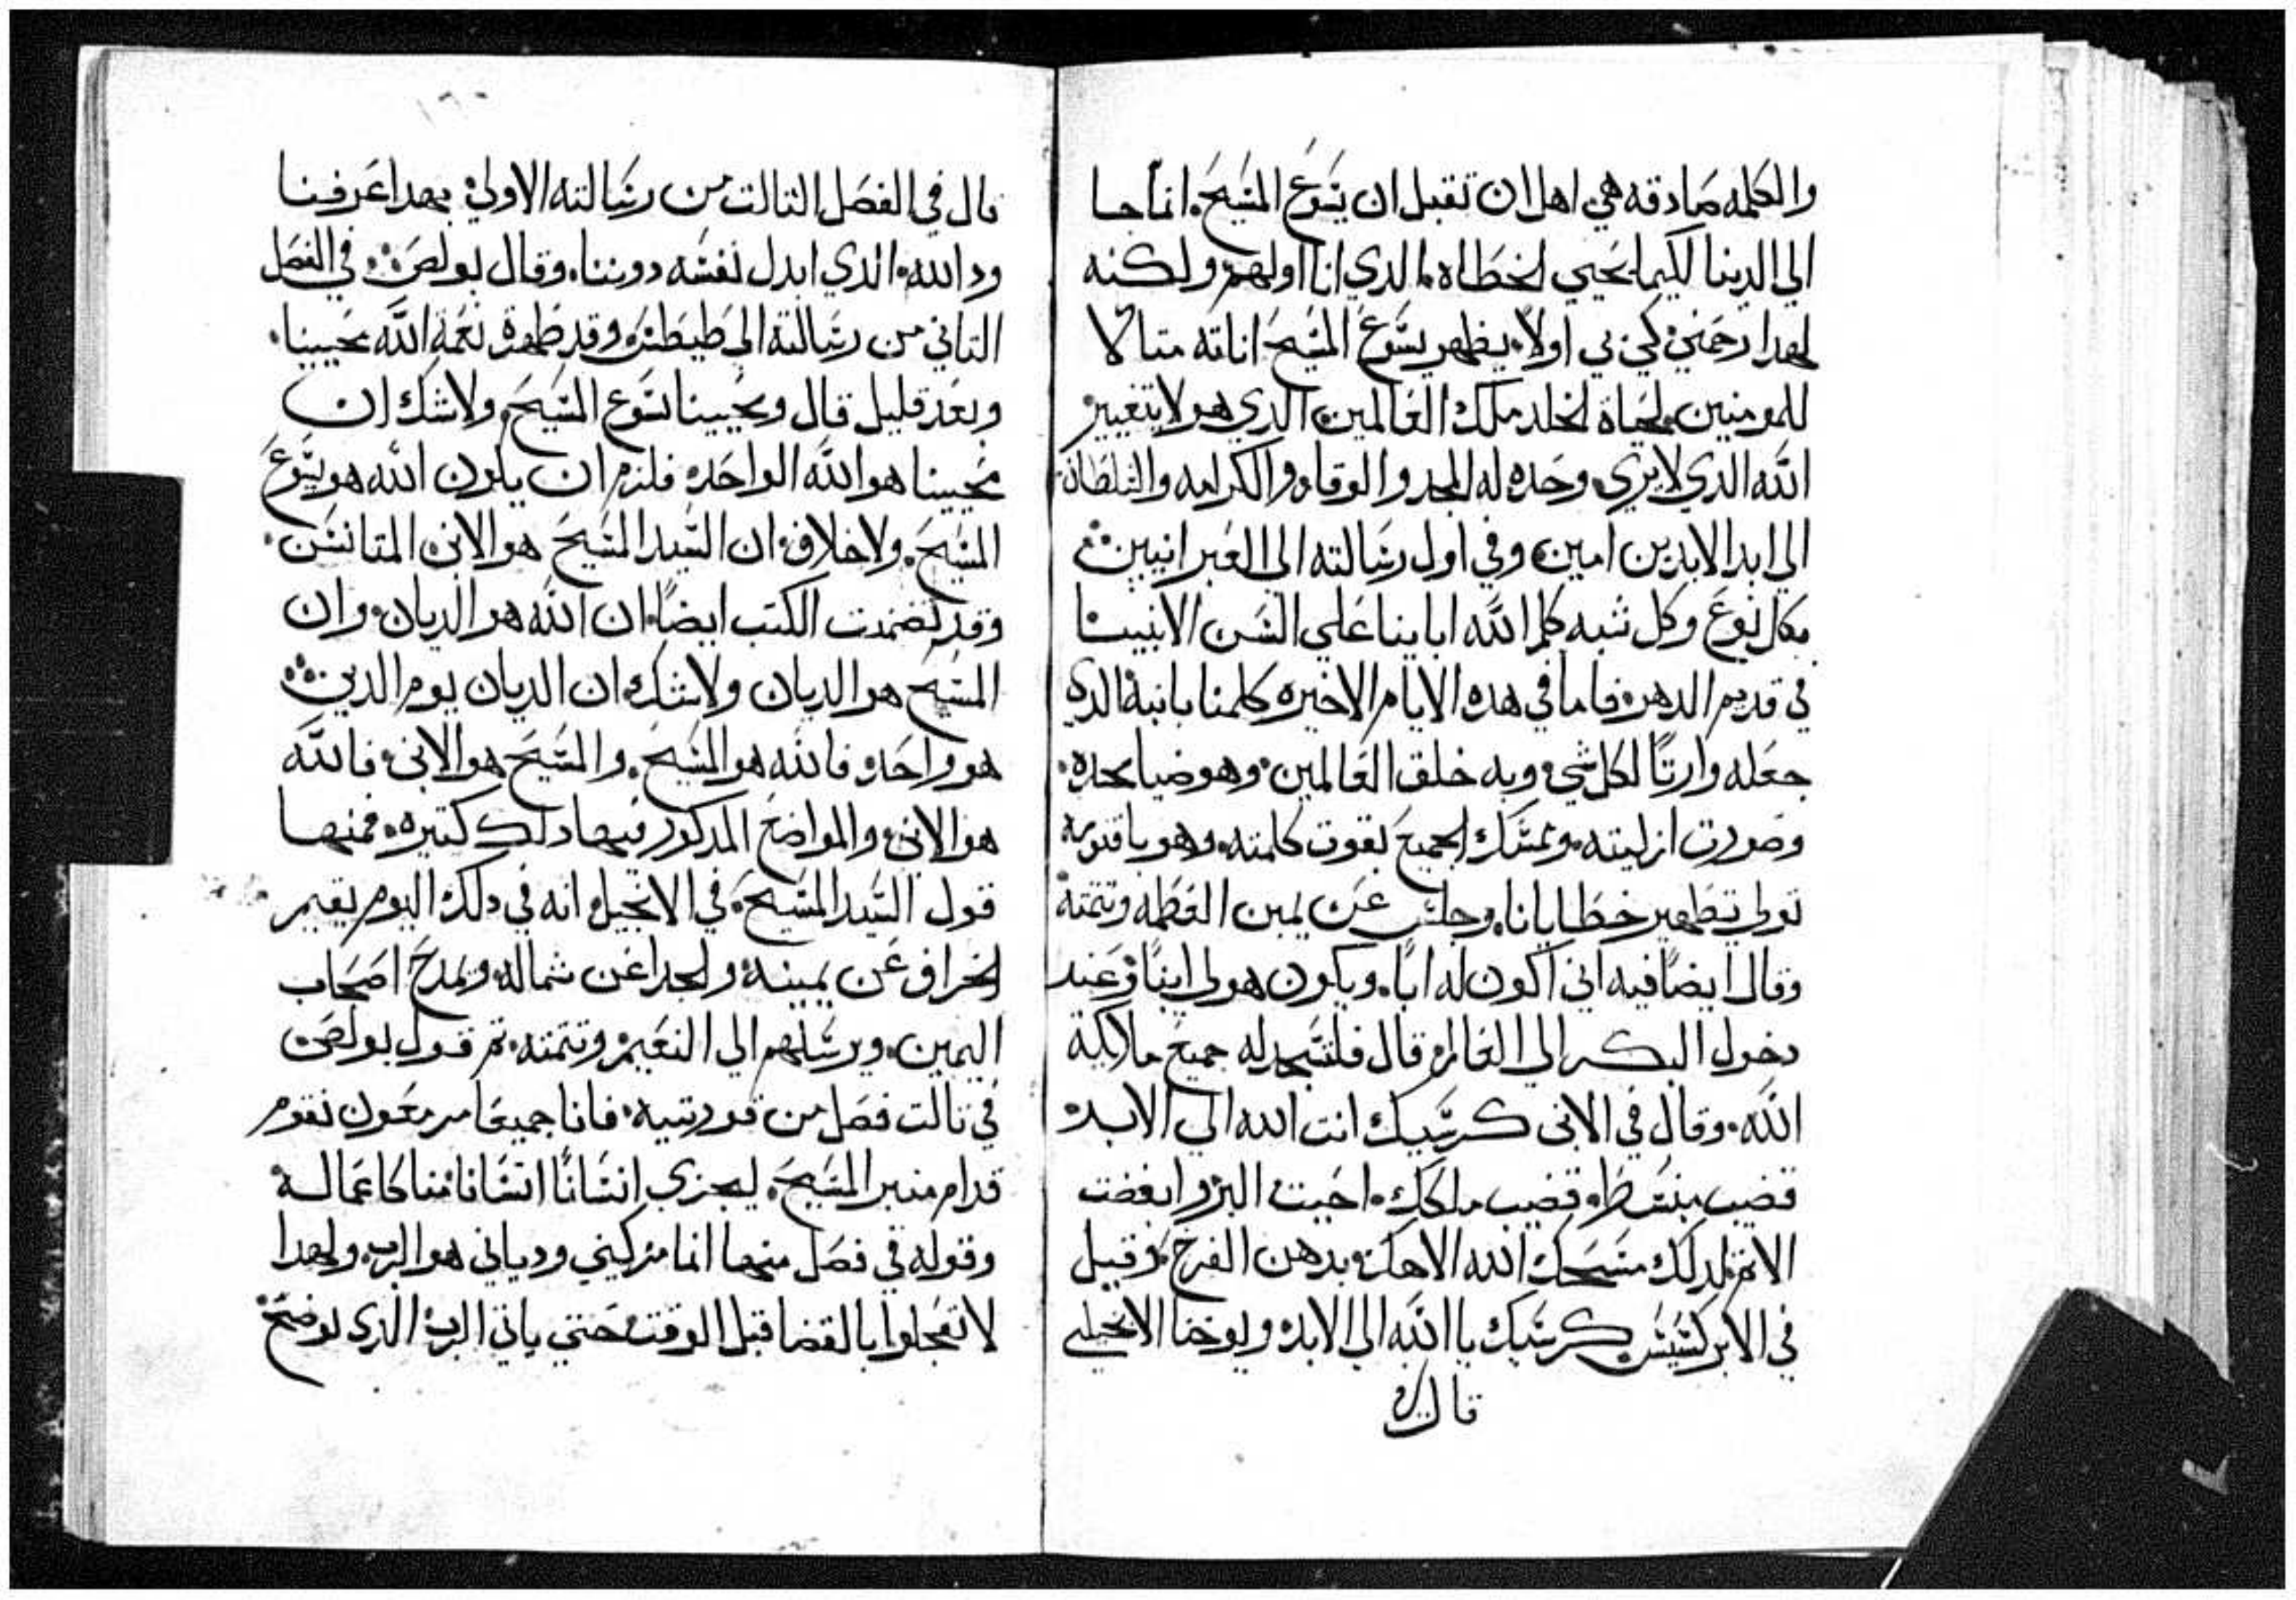 والكلمه صادقه هي اهل ان تقبل ان يسوع المسيح انما جا
الي الدينا لكيما يحيي الخطاه الدي انا اولهم ولكنه
لهدا رحمني كي بي اولا يظهر يسوع المسيح اناته متالا
للمومنين لحياة الخلد ملك العالمين الدي هو لا يتغيير
الله الدي لا يري وحده له المجد والوقار والكرامه والسلطان
الي ابد الابدين امين وفي اول رسالته الي العبرانيين
بكل نوع وكل شبه كلم الله اباينا علي السن الانبيا
في قديم الدهر فاما في هده الايام الاخيره كلمنا بابنه الدي
جعله وارتا لكل شي وبه خلق العالمين وهو ضيا مجده
وصورت ازليته ويمسك الجميع بقوت كلمته وهو باقنومه
تولي تطهير خطايانا وجلس عن يمين العظمه وتتمته
وقال ايضا فيه اني اكون له ابا ويكون هو لي ابنا وعند
دخول البكر الي العالم قال فلتسجد له جميع ملايكة
الله وقال في الابن كرسيك انت الله الي الابد
قضيب منبسط قضيب ملكك احببت البر وابغضت
الاتم لدلك مسحك الله الاهك بدهن الفرح وقيل
في الابركسيس كرسيك يا الله الي الابد ويوحنا الانجيلي
قال
قال في الفصل التالت من رسالته الاولي بهدا عرفنا
ود الله الدي ابدل نفسه دوننا وقال بولص في الفصل
التاني من رسالته الي طيطس وقد ظهرة نعمة الله محيينا
وبعد قليل قال ومحيينا يسوع المسيح ولا شك ان
محيينا هو الله الواحد فلزم ان يكون الله هو يسوع
المسيح ولا خلاف ان السيد المسيح هو الابن المتانس
وقد تضمنت الكتب ايضا ان الله هو الديان وان
المسيح هو الديان ولا شك ان الديان يوم الدين
هو واحد فالله هو المسيح والمسيح هو الابن فالله
هو الابن والمواضع المدكور فيها دلك كتيره فمنها
قول السيد المسيح في الانجيل انه في دلك اليوم يقيم
الخراف عن يمينه والجدا عن شماله ويمدح اصحاب
اليمين ويرسلهم الي النعيم وتتمته تم قول بولص
في تالت فصل من قورنتيه فانا جميعا مزمعون نقوم
قدام منبر المسيح ليجزي انسانا انسانا منا كاعماله
وقوله في فصل منها انما مزكيني ودياني هو الرب ولهدا
لا تعجلوا بالقضا قبل الوقت حتي ياتي الرب الدي يوضح